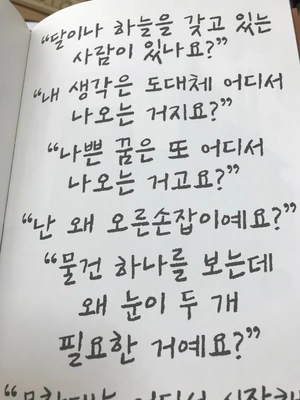 “달이나 하늘을 갖고 있는
사람이 있나요?”
“내 생각은 도대체 어디서
나오는 거지요?”
“나쁜 꿈은 또 어디서
나오는 거고요?”
“난 왜 오른손잡이예요?”
“물건 하나를 보는데
왜 눈이 두 개
필요한 거예요?”